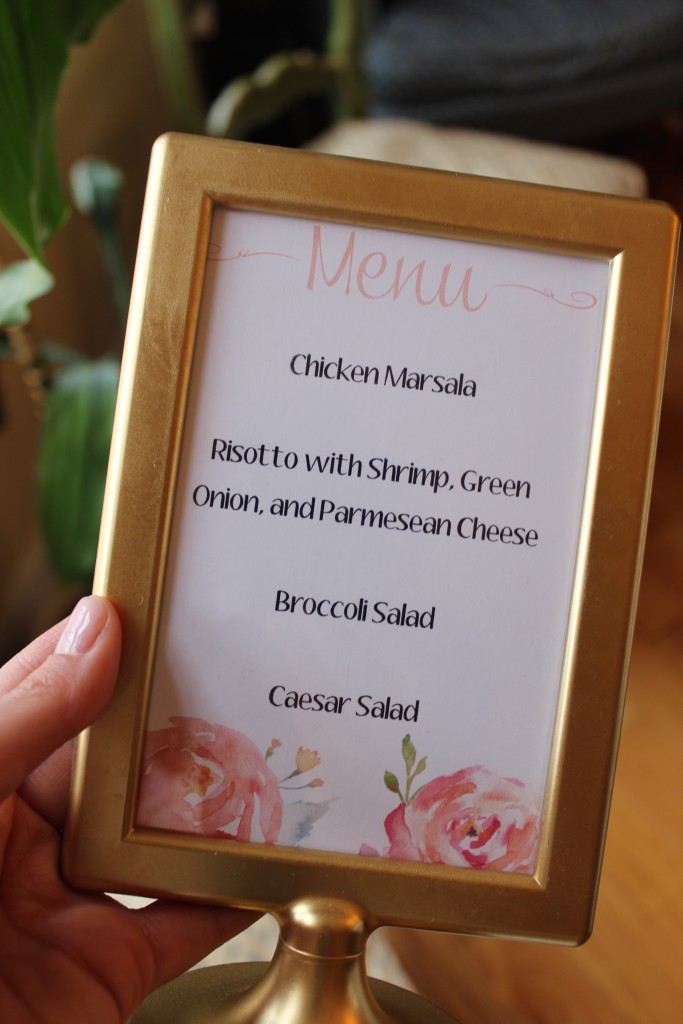 Menu
Chicken Marsala
Risotto with Shrimp, Green
Onion, and Parmesean Cheese
Broccoli Salad
Caesar Salad